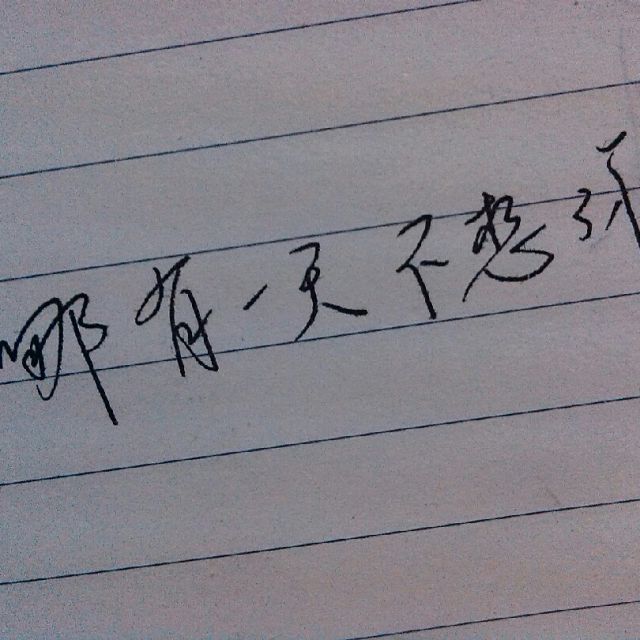 哪有一天不想